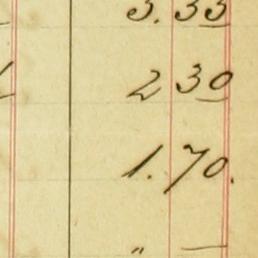 3.33
2 30
1.70.
" —